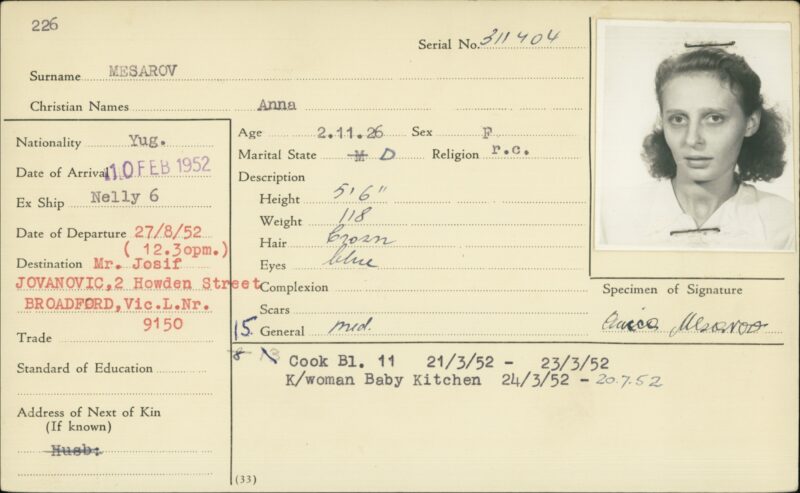 226
Serial No. 311404
Surname MESAROV
Christian Names Anna
Nationality Yug.
Date of Arrival 10 FEB 1952
Ex Ship Nelly 6
Date of Departure 27/8/52
( 12.30pm.)
Destination Mr. Josif
JOVANOVIC,2 Howden Street
BROADFORD,Vic.L.Nr.
9150
Trade
Standard of Education
Address of Next of Kin
(If known)
Husb:
Age 2.11.26 Sex F
Marital State M D Religion r.c.
Description
Height 5'6"
Weight 118
Hair Brown
Eyes blue
Complexion
Scars
15 General med.
8 13 Cook Bl. 11 21/3/52 - 23/3/52
K/woman Baby Kitchen 24/3/52 - 20.7.52
(33)
Specimen of Signature
Mesarov